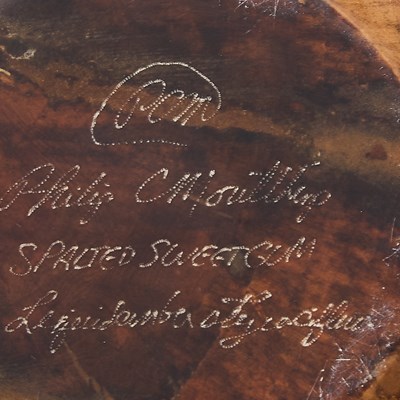 PCM
Philip C Moulthrop
SPALTED SWEETGUM
Liquidambar styraciflua